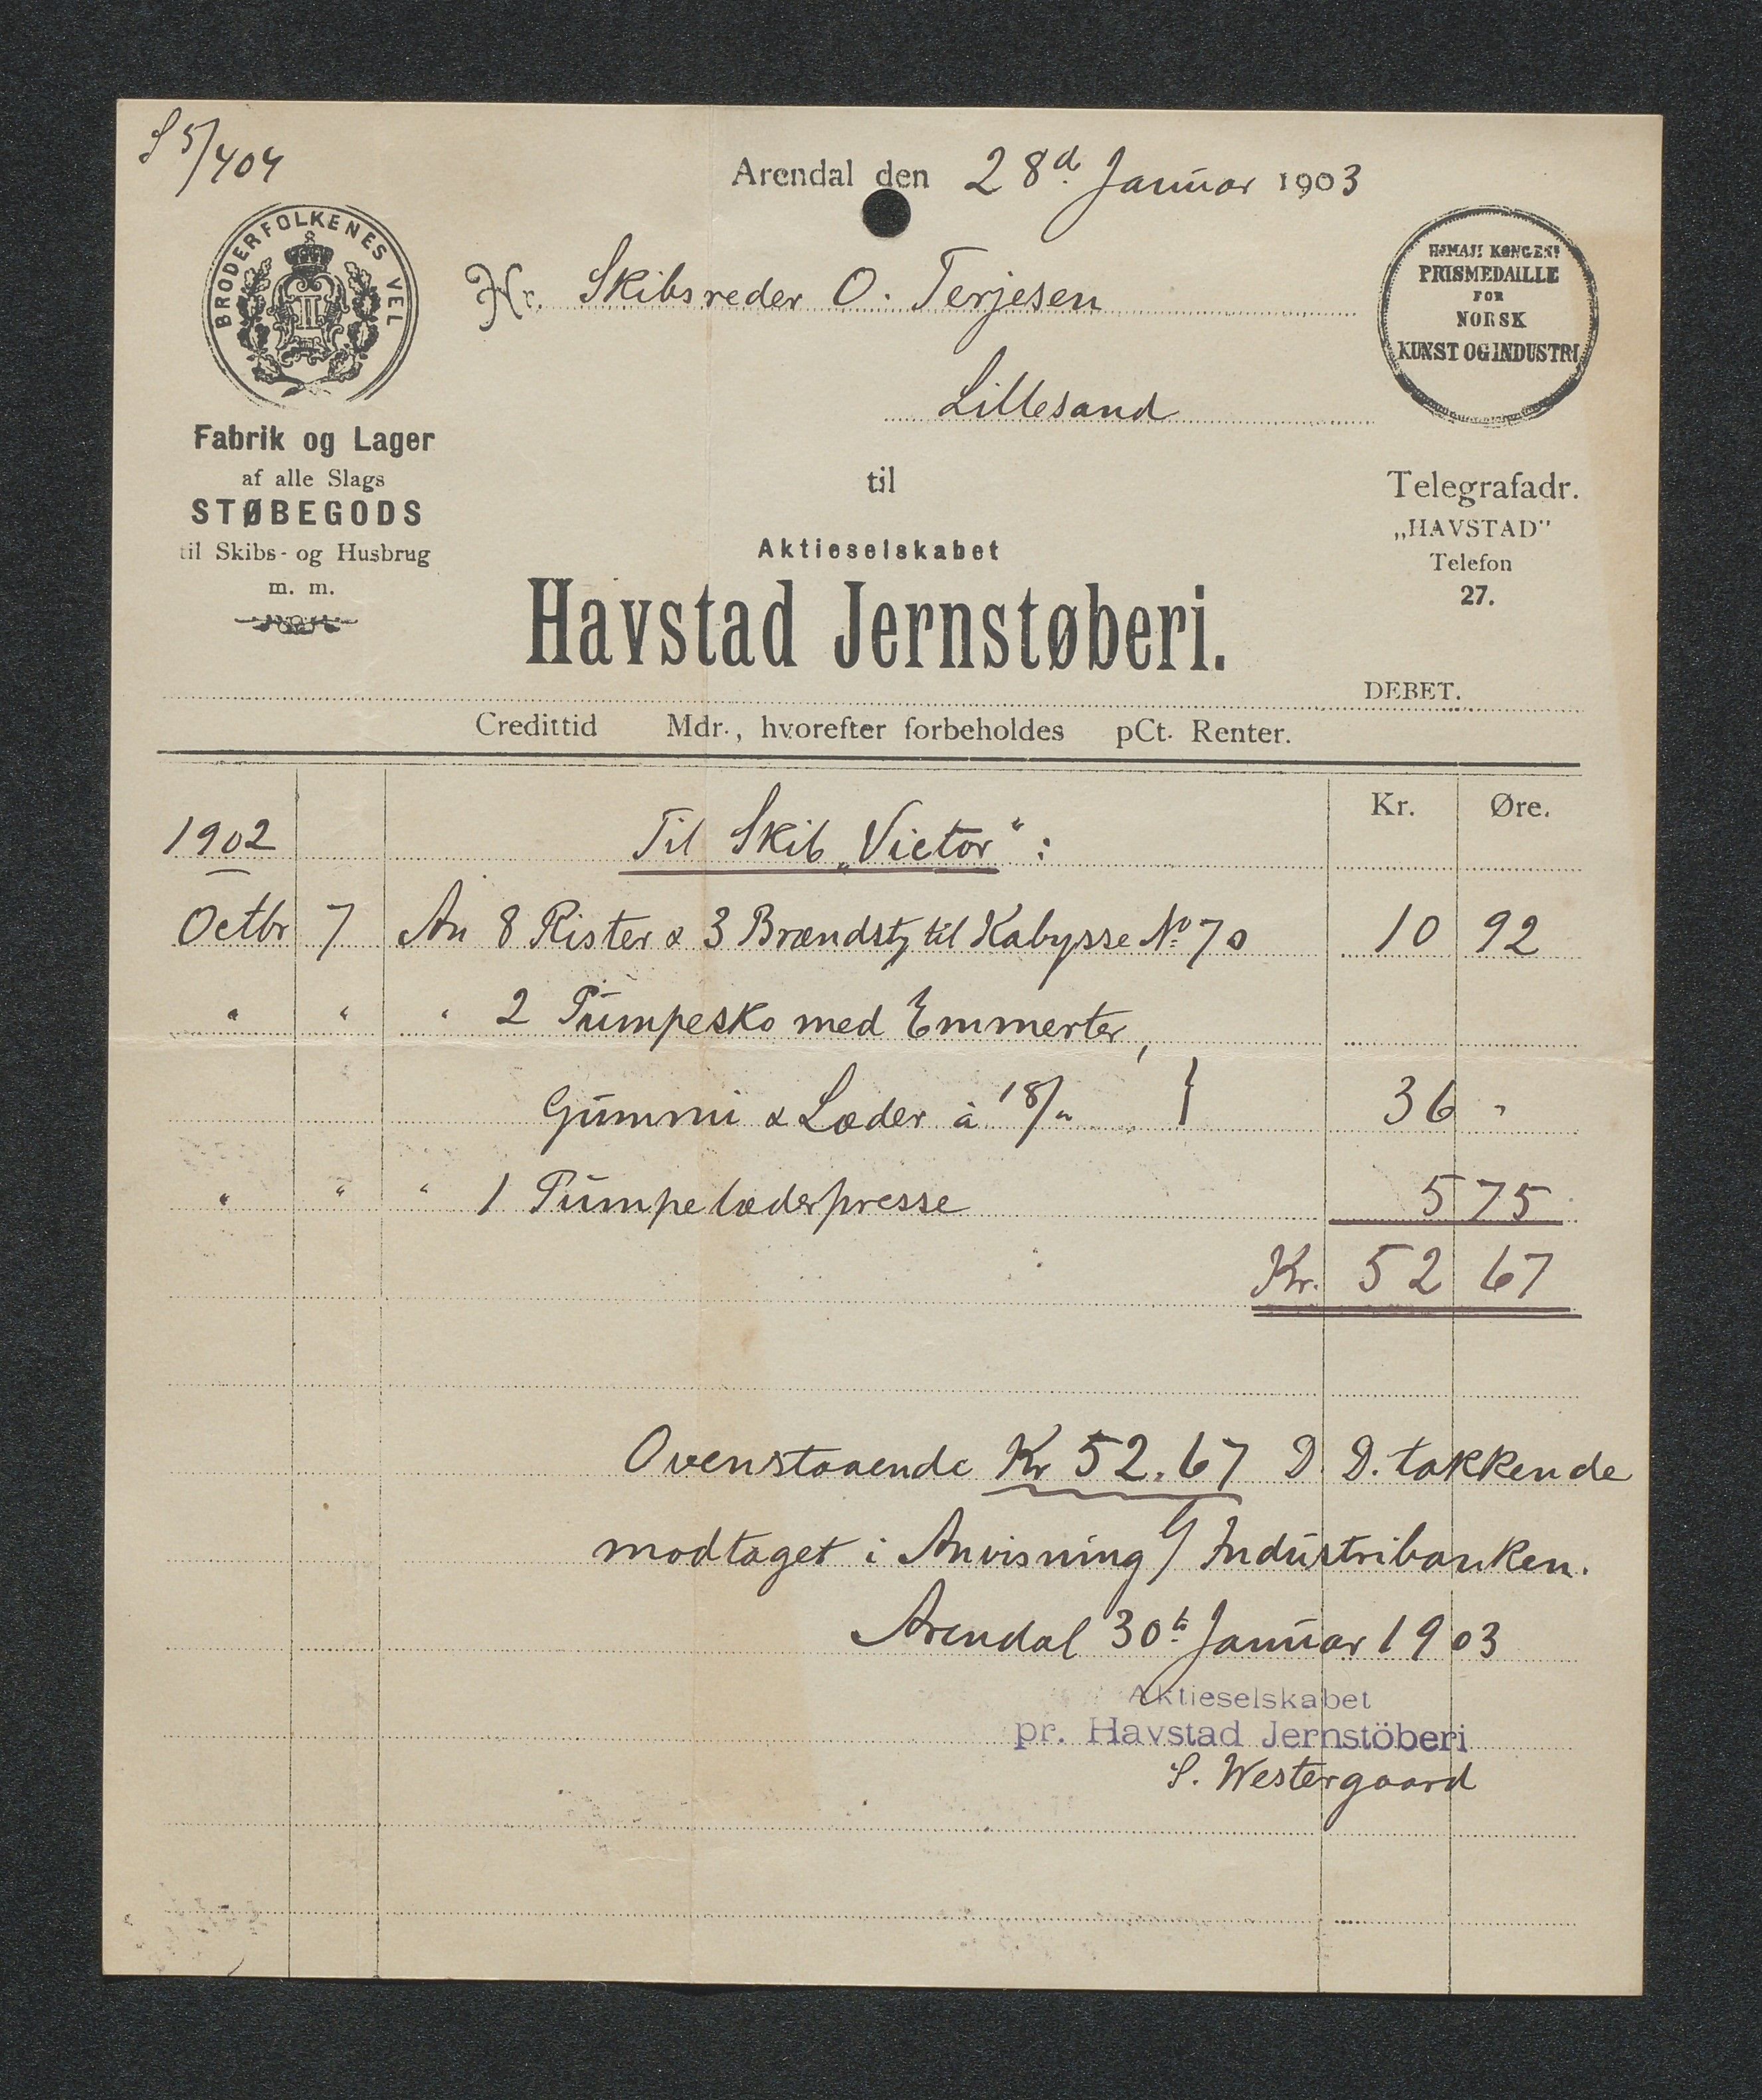 S 5/404
Arendal den 28d. Januar 1903
BRODERFOLKENES VEL
II
Hr. Skibsreder O. Terjesen
Lillesand
H.MAJ: KONGENS
PRISMEDAILLE
FOR
NORSK
KUNST OG INDUSTRI
Fabrik og Lager
af alle Slags
STØBEGODS
til Skibs- og Husbrug
m. m.
til
Aktieselskabet
Havstad Jernstøberi.
Telegrafadr.
„HAVSTAD"
Telefon
27.
DEBET.
Credittid Mdr., hvorefter forbeholdes pCt. Renter.
Kr. Øre.
1902 Til Skib „Victor“:
Octbr 7 An 8 Rister & 3 Brændst, til Kabysse No 70 10 92
" " " 2 Pumpesko med Emmerter,
Gummi & Læder à 18/" } 36 "
" " " 1 Pumpelæderpresse 5 75
Kr. 52 67
Ovenstaaende Kr 52.67 D. D. takkende
modtaget i Anvisning / Industribanken.
Arendal 30te Januar 1903
Aktieselskabet
pr. Havstad Jernstöberi
S. Westergaard